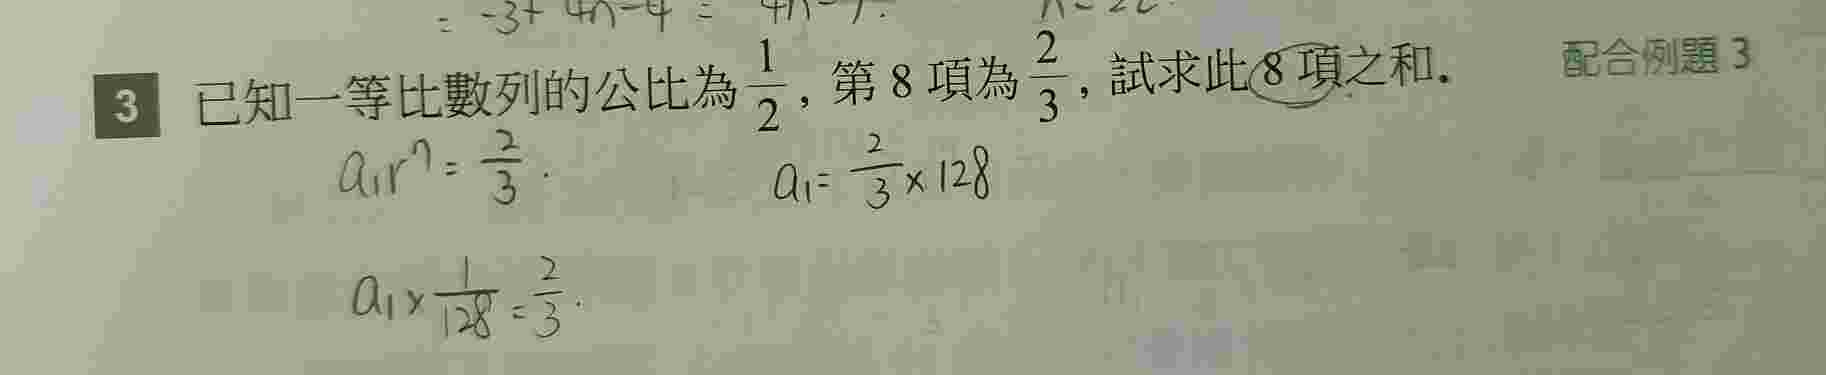 = -3+ 4n-4 = 4n-7.
3 已知一等比數列的公比為 1/2 , 第 8 項為 2/3 , 試求此 8 項之和. 配合例題 3
a₁r⁷ = 2/3 . a₁ = 2/3 × 128
a₁ × 1/128 = 2/3 .